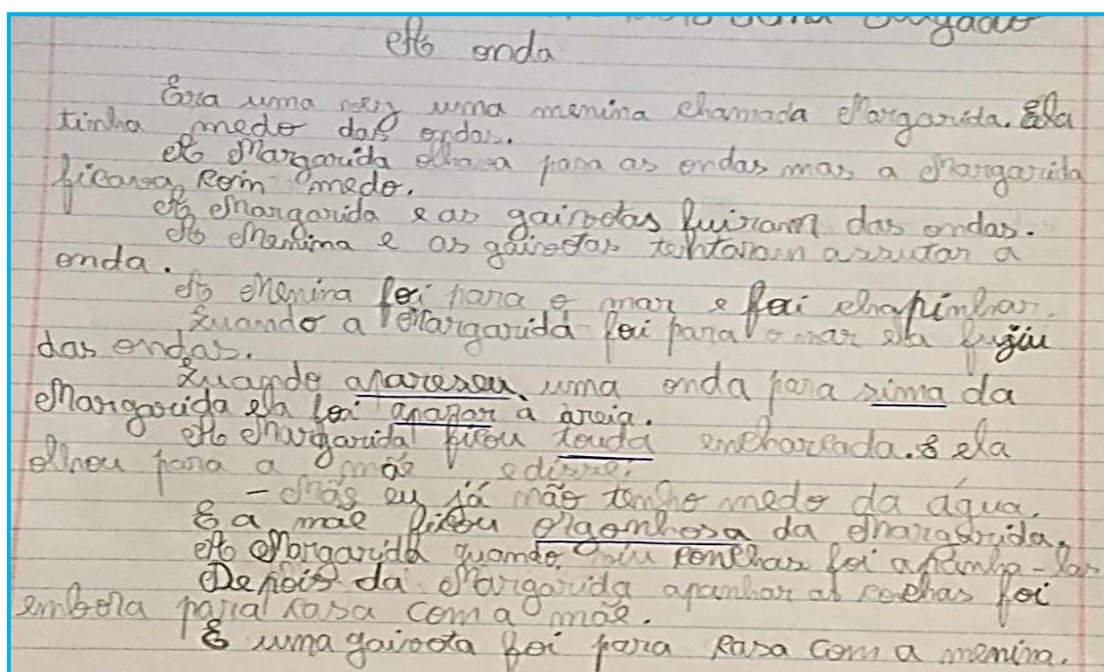 A onda
Era uma vez uma menina chamada Margarida. Ela
tinha medo das ondas.
A Margarida olhava para as ondas mas a Margarida
ficava com medo.
A Margarida e as gaivotas fuiram das ondas.
A Menina e as gaivotas tentaram assutar a
onda.
A Menina foi para o mar e foi chapinhar.
Quando a Margarida foi para o mar ela fugiu
das ondas.
Quando apareseu uma onda para sima da
Margarida ela foi a areia.
A Margarida ficou touda encharcada. E ela
olhou para a mãe e disse:
- Mãe eu já não tenho medo da água.
E a mãe ficou orgonhosa da Margarida.
A Margarida quando viu conchas foi apanha-las
Depois da Margarida apanhar as conchas foi
embora para casa com a mãe.
E uma gaivota foi para casa com a menina.